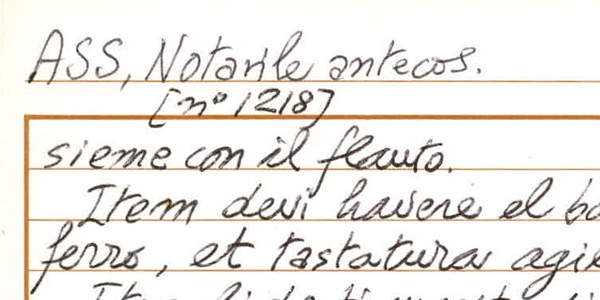 ASS, Notarile antecos.
[nº 1218]
sieme con il flauto.
Item devi havere el
ferro, et tastatura
Item